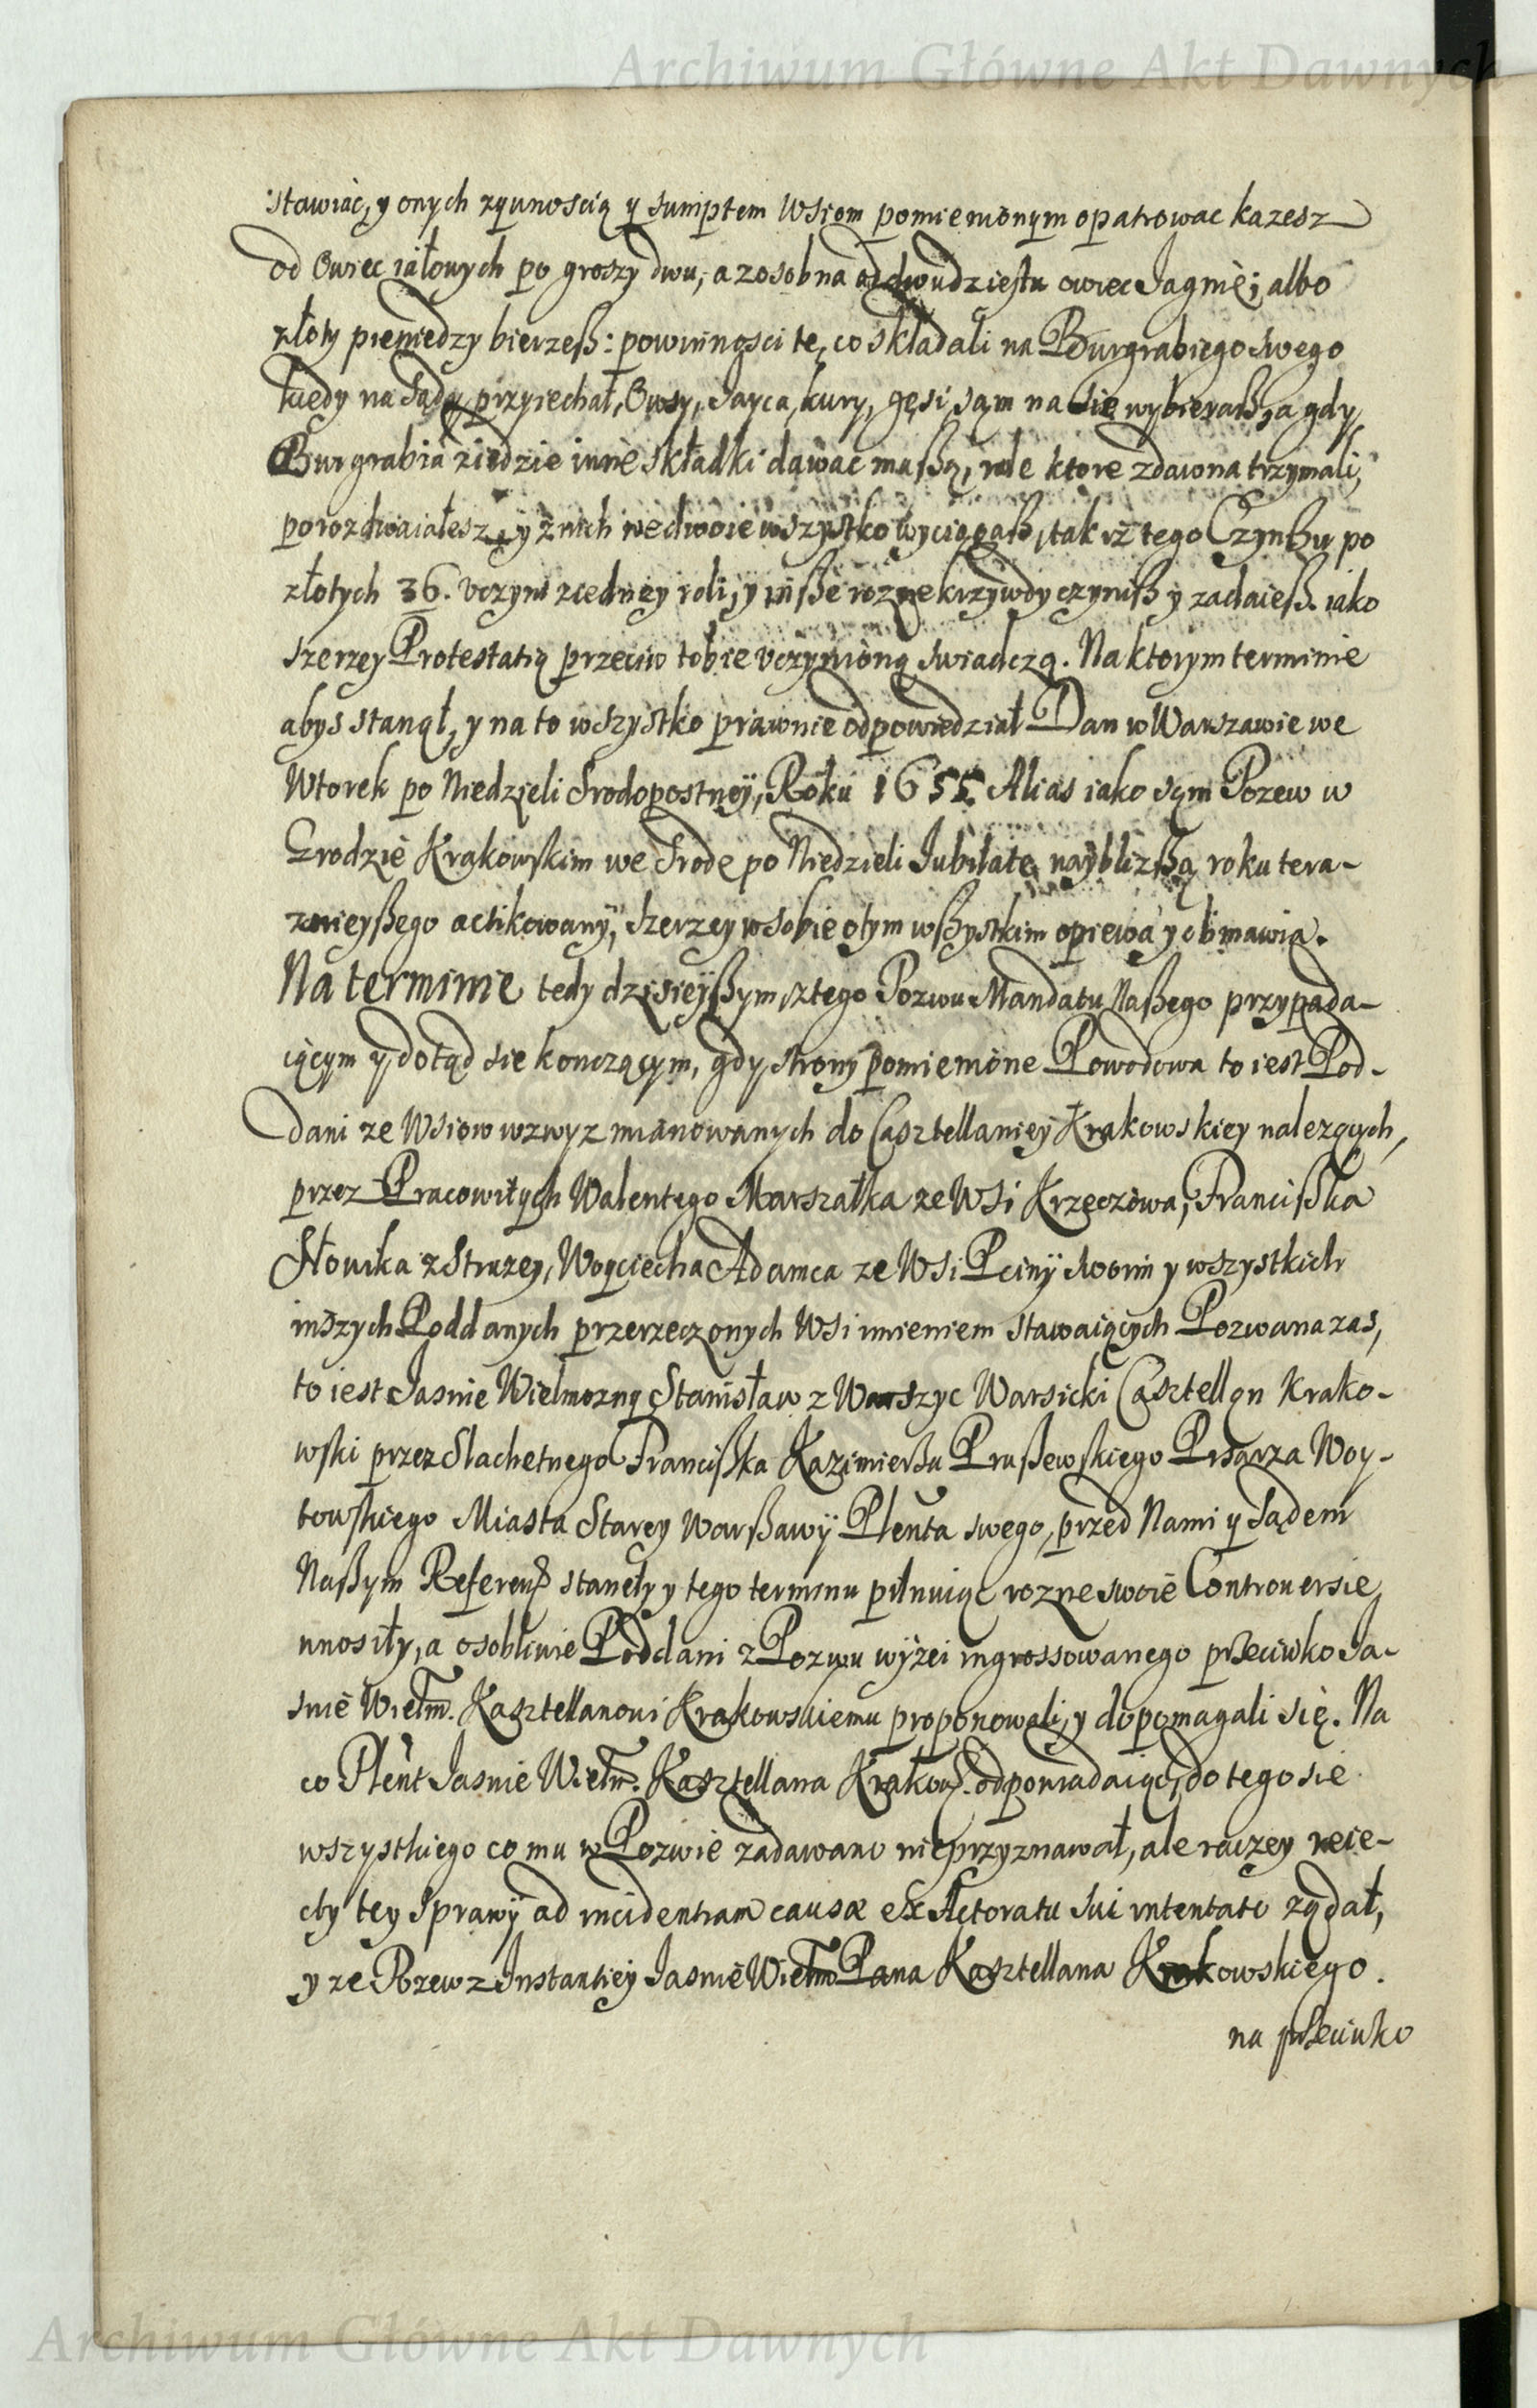 Archiwum Główne Akt Dawnych
stawiać, y onych zywnoscią y sumptem Wsiom pomienionym opatrowac kazesz
od Owiec iałowych po groszy dwu, a zosobna od dwudziestu owiec Jagnię, albo
złoty pieniedzy bierzeß: powinnosci te, co składali na Burgrabiego swego
kiedy na Sądy przyiechał, Owsy, Jayca, kury, gęsi, sąm na sie wybieraß, a gdy
Burgrabia ziedzie inne składki dawac mußą, role ktore zdawna trzymali,
porozdwaiałesz, y z nich we dwoie wszystko wyciągaß, tak iż tego Czynßu po
złotych 36. vczyni z iedney roli, y inße rozne krzywdy czyniß y zadaieß. iako
szerzey Protestatią przeciw tobie vczynioną swiadczą. Na ktorym terminie
abys stanął, y na to wszystko prawnie odpowiedział Dan w Warszawie we
Wtorek po Niedzieli Srodopostney, Roku 1655. Alias iako sąm Pozew w
Grodzie Krakowskim we Srode po Niedzieli Jubilate nayblizßą roku tera-
znieyßego actikowany, szerzey w sobie o tym wßystkim opiewa y obmawia.
Na terminie tedy dzisieyßym, z tego Pozwu Mandatu Naßego przypada-
iącym y dotąd sie konczącym, gdy strony pomienione Powodowa to iest Pod-
dani ze Wsiow wzwyz mianowanych do Casztellaniey Krakowskiey nalezących,
przez Pracowitych Walentego Marszałka ze Wsi Krzeczowa, Franciszka
Słowika z Struzey, Woyciecha Adamca ze Wsi Pciny swoim y wszystkich
inszych Poddanych przerzeczonych Wsi imieniem stawaiących Pozwana zas,
to iest Jasnie Wielmozny Stanisław z Warszyc Warsicki Casztellan Krako-
wski przez Slachetnego Francißka Kazimierßa Prußewskiego Pisarza Woy-
towskiego Miasta Starey Warßawy Plenta swego, przed Nami y Sądem
Naßym Referen. stanęły y tego terminu pilnuiąc rozne swoie Controuersie
wnosiły, a osobliwie Poddani z Pozwu wyżei ingrossowanego przeciwko Ja-
snie Wielm. Kasztellanowi Krakowskiemu proponowali, y dopomagali się. Na
co Plent Jasnie Wielm. Kasztellana Krakow. odpowiadaiąc, do tego sie
wszystkiego co mu w Pozwie zadawano nieprzyznawał, ale raczey reie-
cty tey sprawy ad incidentiam causæ ex Actoratu sui intentate ządał,
y ze Pozew z Instantiey Jasnie Wielm. Pana Kasztellana Krakowskiego.
na przeciwko
Archiwum Główne Akt Dawnych